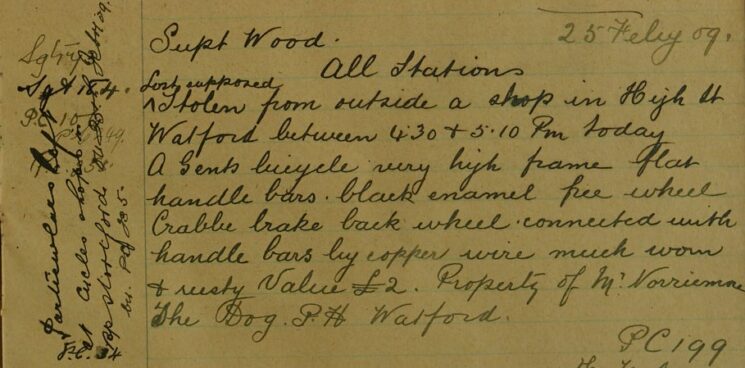 Supt Wood.
25 Feby 09.
All Stations
Lost supposed
^Stolen from outside a shop in High St
Watford between 4.30 & 5.10 Pm today
A Gents bicycle very high frame flat
handle bars. black enamel free wheel
Crabbe brake back wheel. connected with
handle bars by copper wire much worn
& rusty Value £2. Property of Mr
The Dog. P.H Watford.
PC 199
Particulars left
at Cycles shops in
by PC 205.
Sgt
Sgt 18.4.
P.C. 10